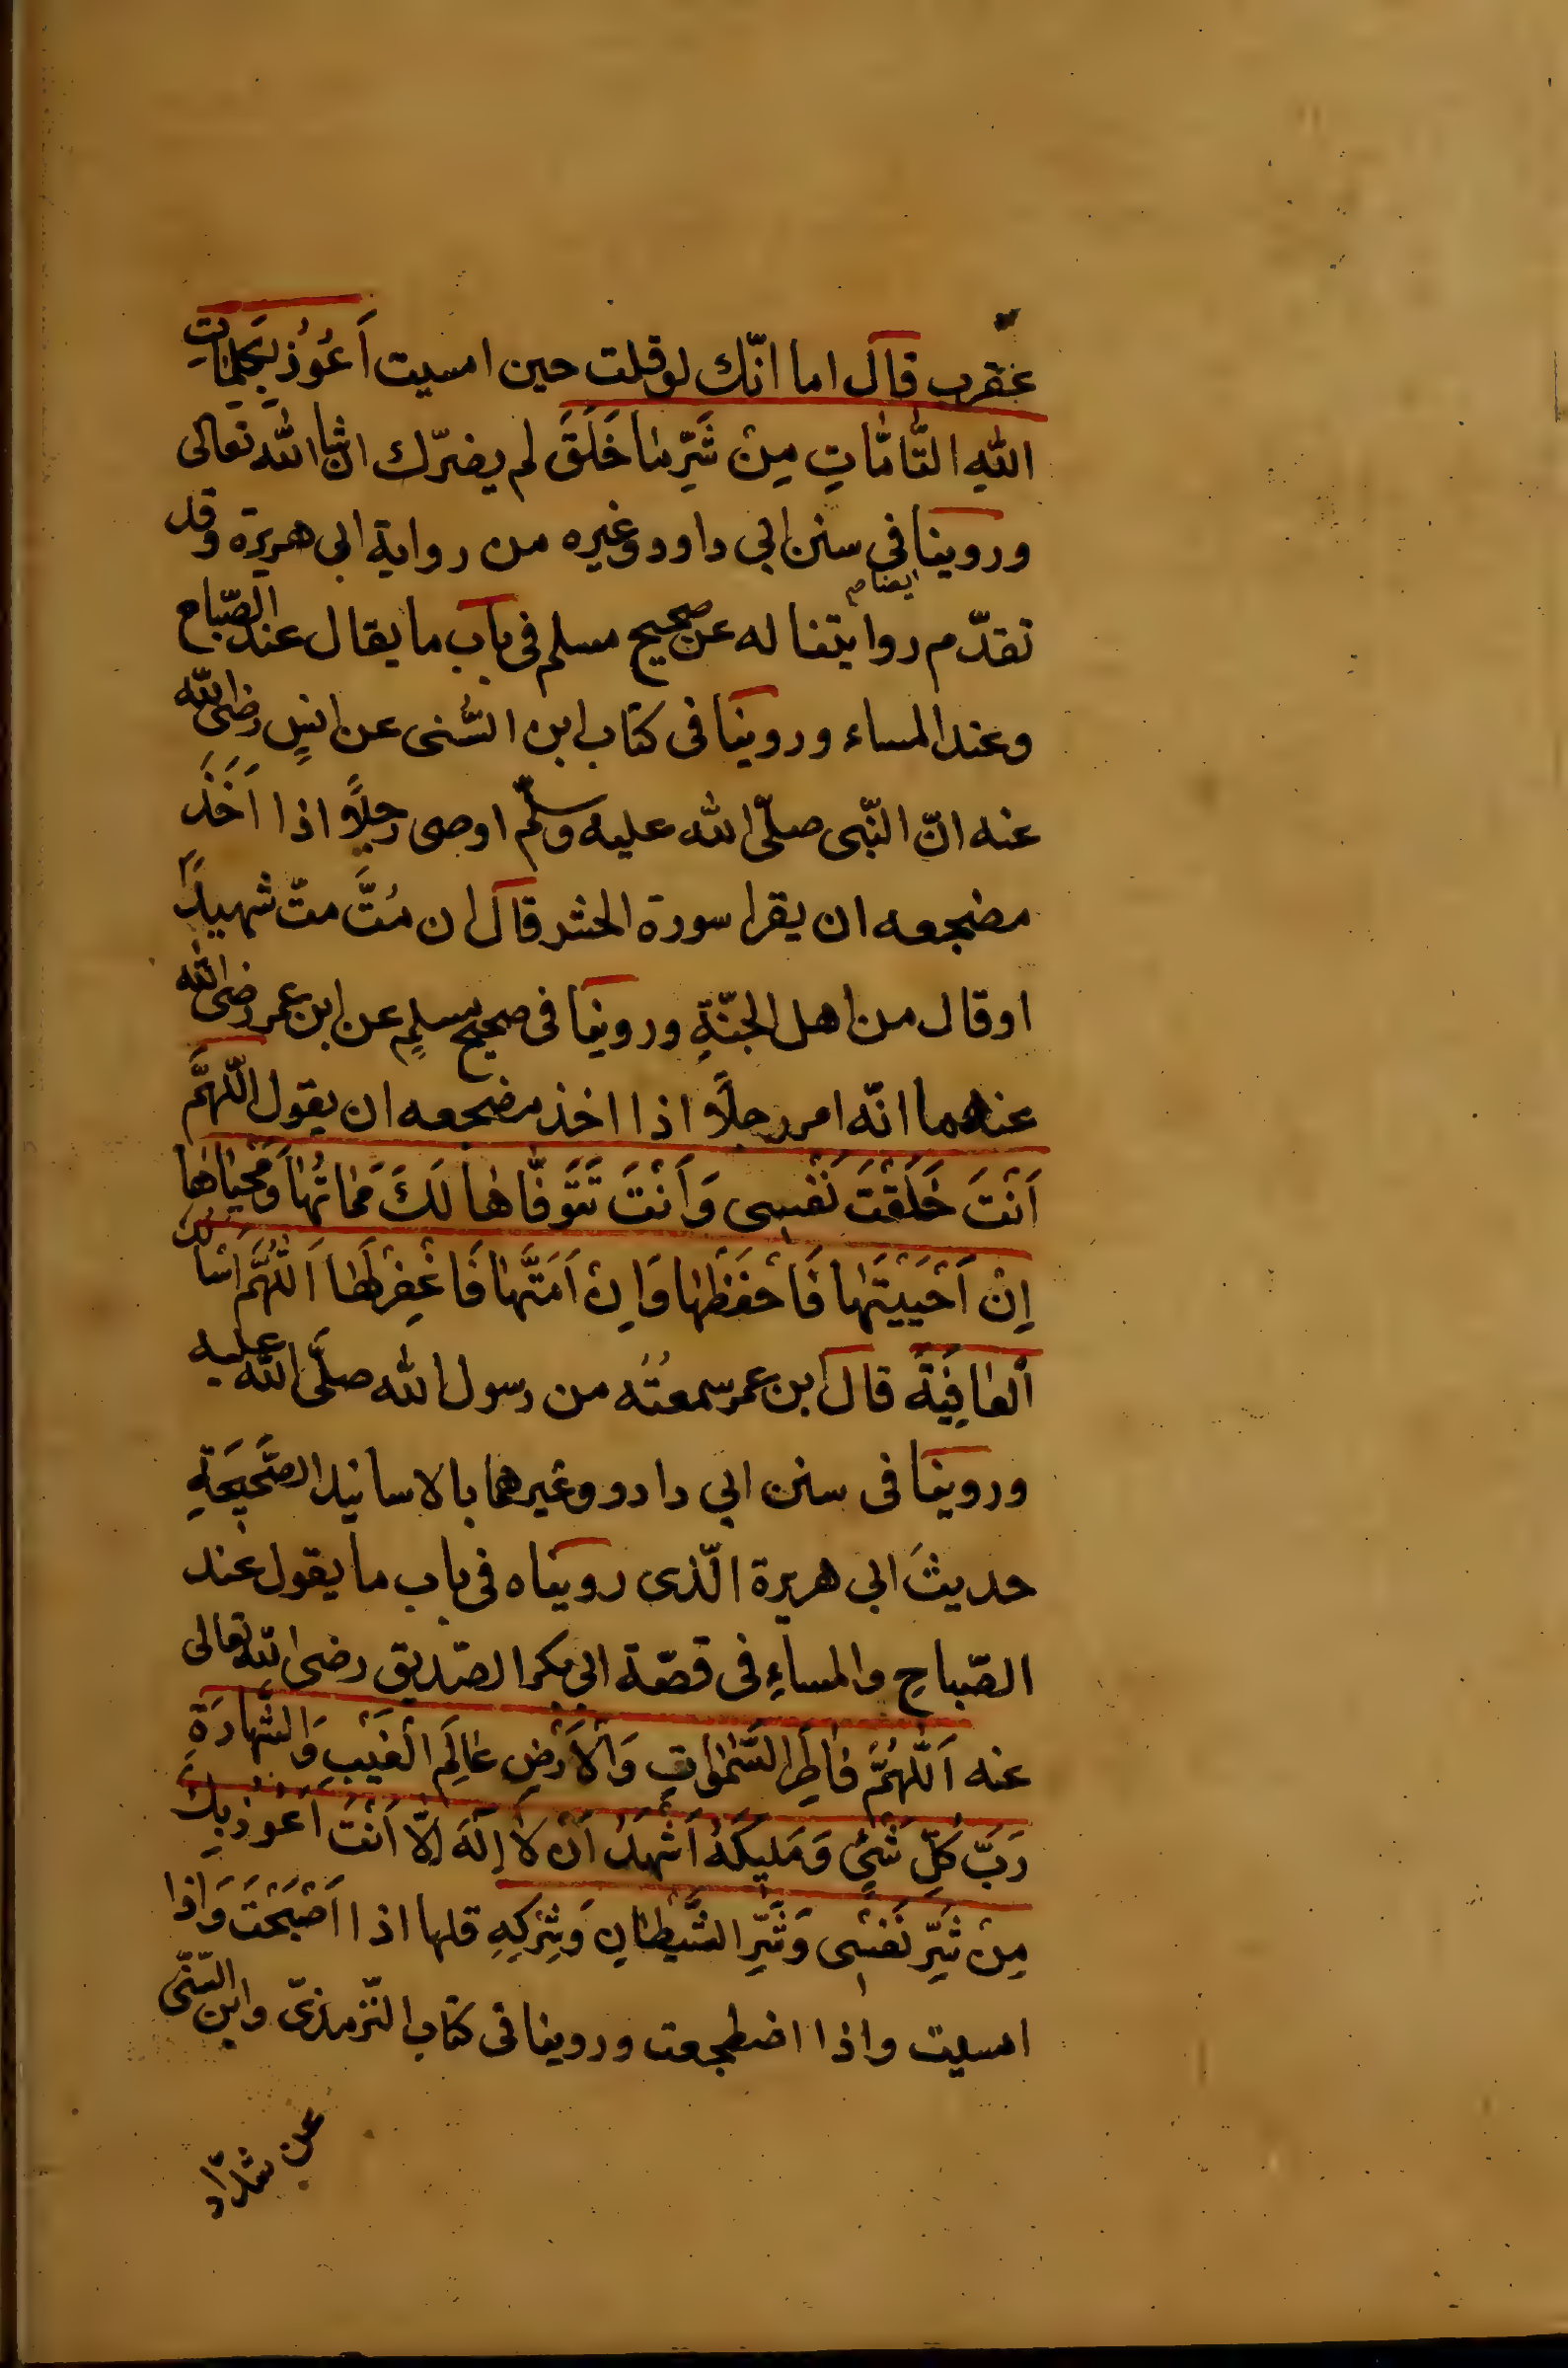 عقرب قال اما انّك لو قلت حين امسيت اَعُوُذُ بِكَلِمَاتِ
اللهِ التَّامَّاتِ مِنْ شَرِّ مَا خَلَقَ لم يضرّك ان شا الله تعالى
وروينا في سنن ابي داود وغيره من رواية ابي هريرة وقد
تقدّم روايتنا له ايضا عن صحيح مسلم في باب ما يقال عند الصّباح
وعند المساء وروينا في كتاب ابن السُّنى عن انسٍ رضى الله
عنه انّ النّبى صلّى الله عليه وسلّم اوصى رجلًا اذا اَخَذَ
مضجعه ان يقرا سورة الحشر قال ان مُتَّ متّ شهيدًا
او قال من اهل الجنّةِ وروينا في صحيح مسلمٍ عن ابن عمر رضى الله
عنهما انّه امر رجلًا اذا اخذ مضجعه ان يقول اللّهُمَّ
اَنْتَ خَلَقْتَ نَفْسِى وَاَنْتَ تَتَوَفَّاهَا لَكَ مَمَاتُهَا وَمَحْيَاهَا
اِنْ اَحْيَيْتَهَا فَاحْفَظْهَا وَاِنْ اَمَتَّهَا فَاغْفِرْلَهَا اَللّٰهُمَّ اَسْأَلُكَ
اَلْعَافِيَةَ قال ابن عمر سمعتُه من رسول الله صلَّى الله عليه
وروينا في سنن ابي داود وغيرهما بالاسانيد الصَّحيحَةِ
حديثَ ابي هريرة الّذى رويناه في باب ما يقول عند
الصّباحِ والمساءِ في قصّة ابي بكر الصّديق رضى الله تعالى
عنه اَللّٰهُمَّ فَاطِرَ السَّمٰوَاتِ وَالْاَرْضِ عَالِمَ الْغَيْبِ وَالشَّهَادَةِ
رَبَّ كُلِّ شَيْءٍ وَمَلِيكَهُ اَشْهَدُ اَنْ لَا اِلٰهَ اِلَّا اَنْتَ اَعُوذُ بِكَ
مِنْ شَرِّ نَفْسِى وَشَرِّ الشَّيْطَانِ وَشِرْكِهِ قلها اذا اَصْبَحْتَ وَاِذَا
امسيت واذا اضطجعت وروينا في كتاب التّرمذىّ وابن السّنّى
عن شدّاد